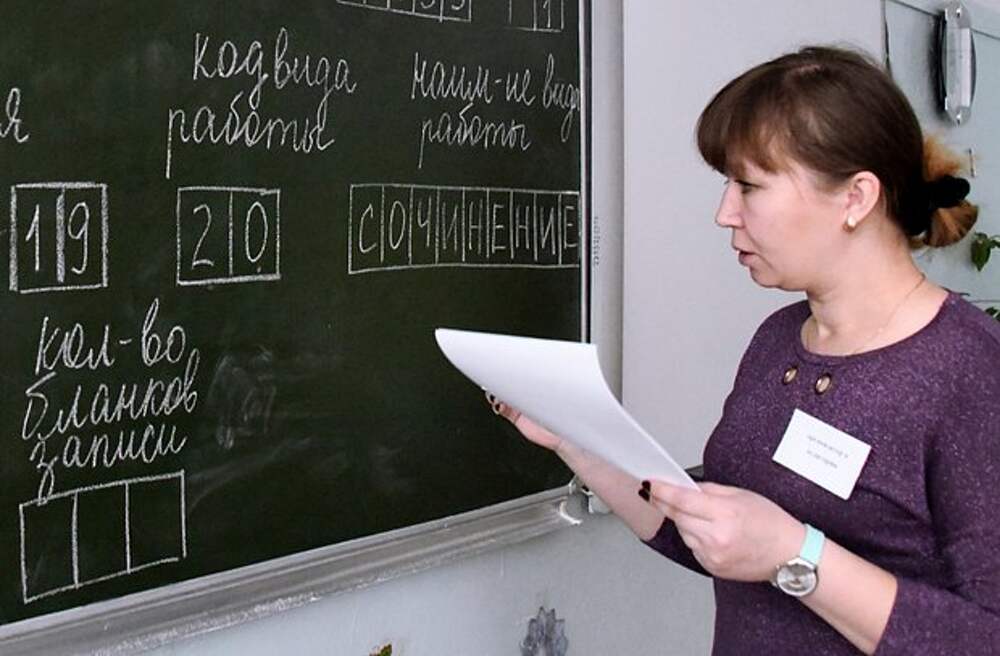 код вида
работы
наим-не вида
работы
я
19
20
СОЧИНЕНИЕ
кол-во
бланков
записи
организатор в
аудитории